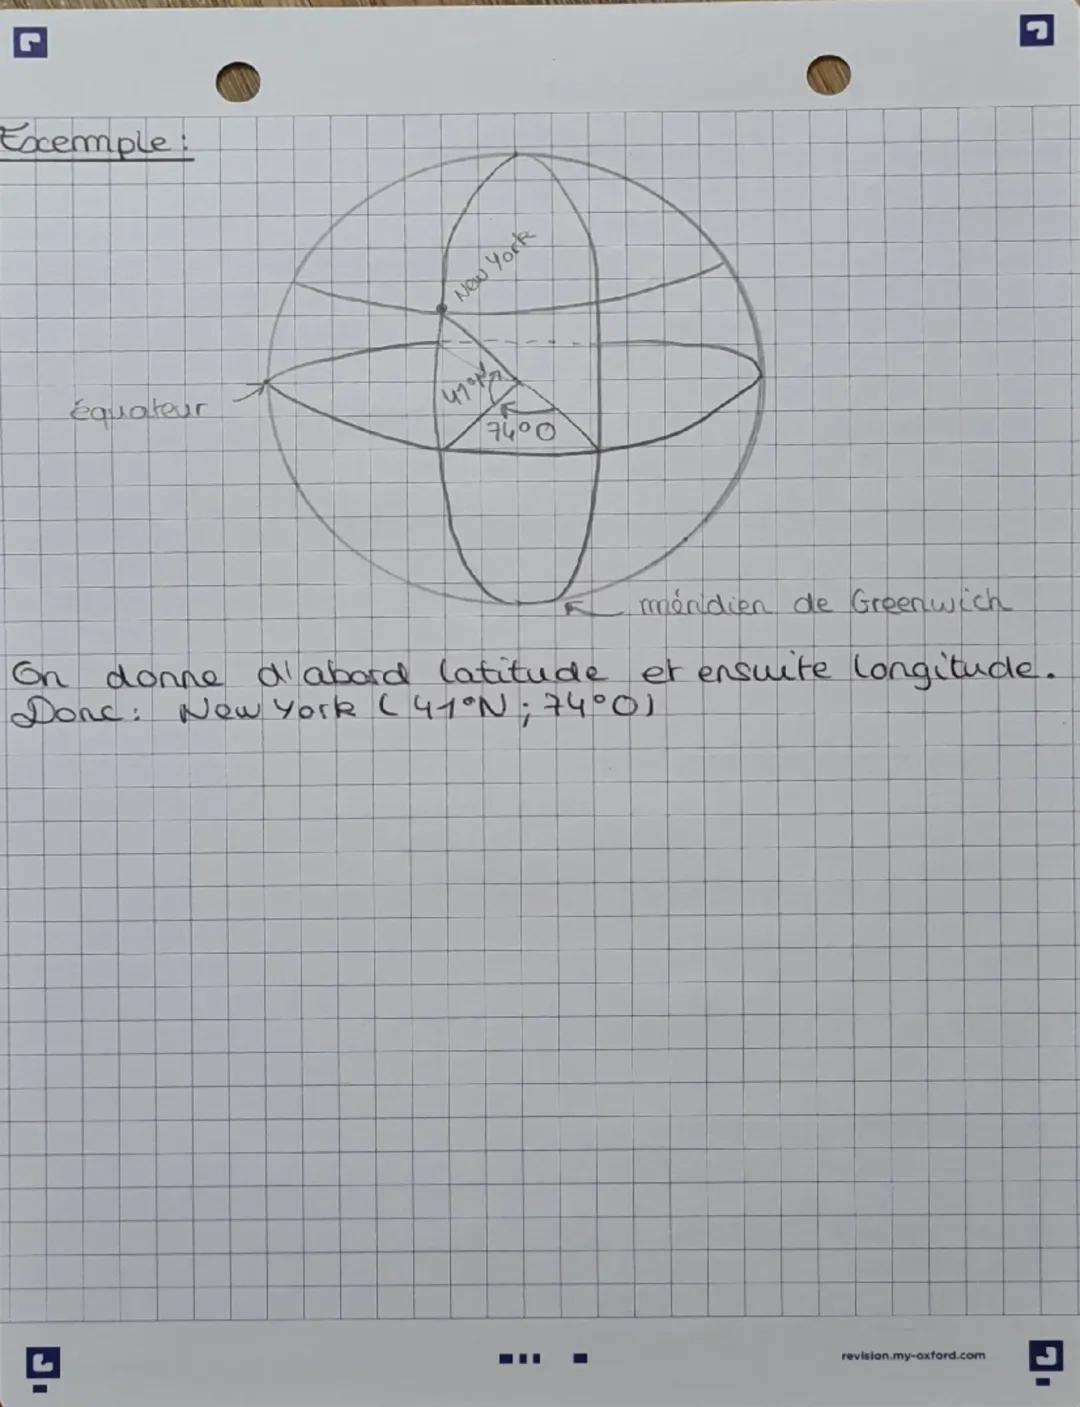 Exemple :
New York
41°N
équateur
74°O
méridien de Greenwich
On donne d'abord latitude et ensuite longitude.
Donc : New York (41°N ; 74°O)
revision.my-oxford.com